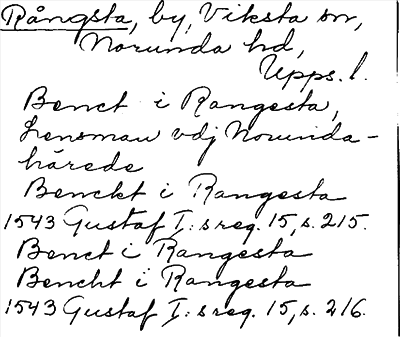 Rångsta, by, Viksta sn,
Norunda hd,
Upps. l.
Benct i Rangesta,
Lensman vdj Norunda-
härede
Benckt i Rangesta
1543 Gustaf I:s reg. 15, s. 215.
Benct i Rangesta
Bencht i Rangesta
1543 Gustaf I:s reg. 15, s. 216.